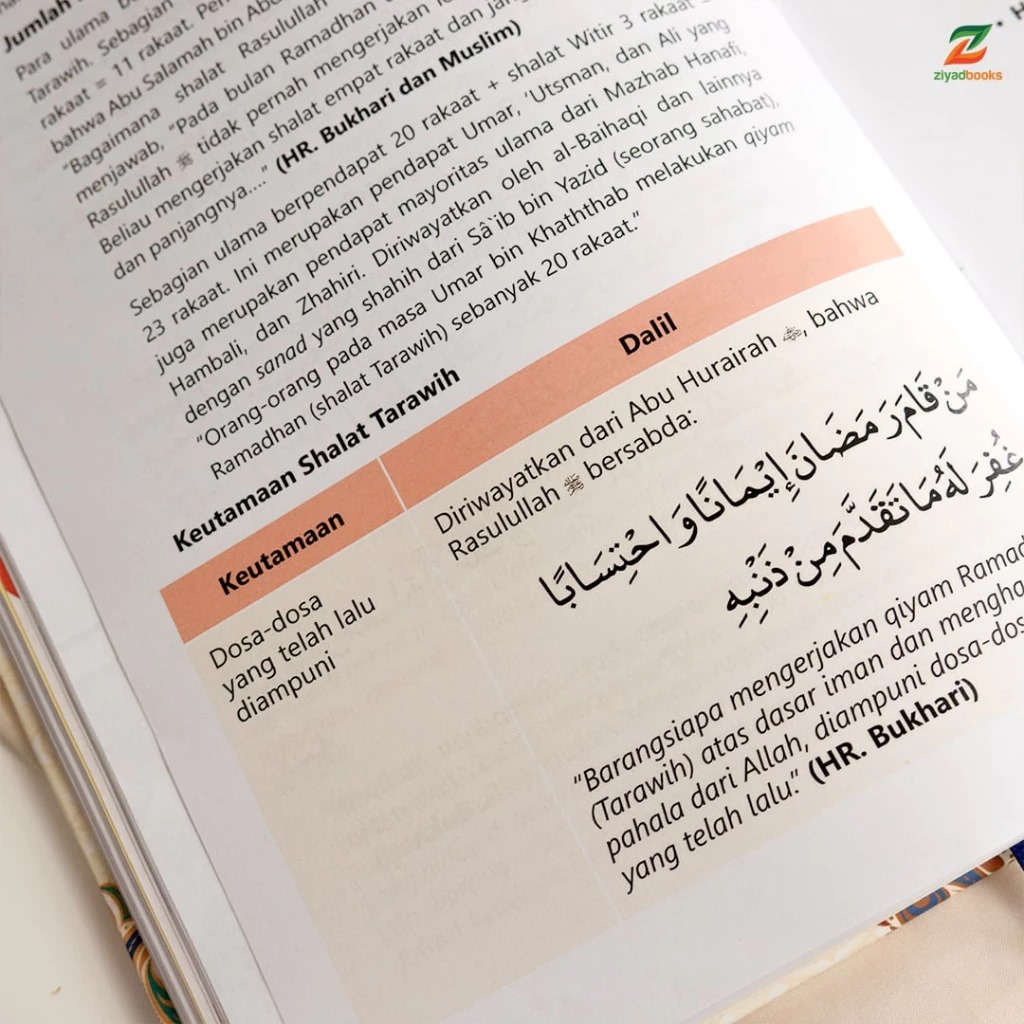 Jumlah
Para ulama
Tarawih. Sebagian
rakaat = 11 rakaat.
bahwa Abu Salamah bin
"Bagaimana shalat Rasulullah
menjawab, "Pada bulan Ramadhan
Rasulullah ﷺ tidak pernah mengerjakan
Beliau mengerjakan shalat empat rakaat dan
dan panjangnya...." (HR. Bukhari dan Muslim)
Sebagian ulama berpendapat 20 rakaat + shalat Witir 3 rakaat =
23 rakaat. Ini merupakan pendapat Umar, 'Utsman, dan Ali yang
juga merupakan pendapat mayoritas ulama dari Mazhab Hanafi,
Hambali, dan Zhahiri. Diriwayatkan oleh al-Baihaqi dan lainnya
dengan sanad yang shahih dari Sâ`ib bin Yazid (seorang sahabat),
"Orang-orang pada masa Umar bin Khaththab melakukan qiyam
Ramadhan (shalat Tarawih) sebanyak 20 rakaat."
Keutamaan Shalat Tarawih
Keutamaan
Dalil
Dosa-dosa
yang telah lalu
diampuni
Diriwayatkan dari Abu Hurairah, bahwa
Rasulullah ﷺ bersabda:
مَنْ قَامَ رَمَضَانَ إِيْمَانًا وَاحْتِسَابًا
غُفِرَ لَهُ مَا تَقَدَّمَ مِنْ ذَنْبِهِ
"Barangsiapa mengerjakan qiyam
(Tarawih) atas dasar iman dan
pahala dari Allah, diampuni
yang telah lalu." (HR. Bukhari)
ziyadbooks